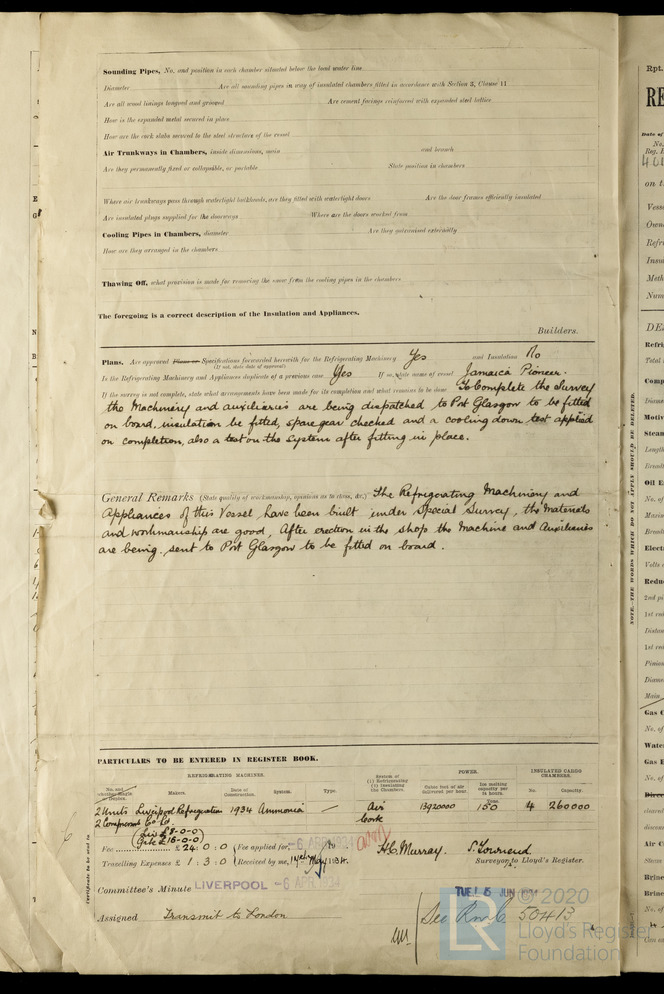 Sounding Pipes, No. and position in each chamber situated below the load water line
Diameter Are all sounding pipes in way of insulated chambers fitted in accordance with Section 3, Clause 11
Are all wood linings tongued and grooved Are cement facings reinforced with expanded steel lattice
How is the expanded metal secured in place
How are the cork slabs secured to the steel structure of the vessel
Air Trunkways in Chambers, inside dimensions, main and branch
Are they permanently fixed or collapsible, or portable State position in chambers
Where air trunkways pass through watertight bulkheads, are they fitted with watertight doors Are the door frames efficiently insulated
Are insulated plugs supplied for the doorways Where are the doors worked from
Cooling Pipes in Chambers, diameter Are they galvanised externally
How are they arranged in the chambers
Thawing Off, what provision is made for removing the snow from the cooling pipes in the chambers
The foregoing is a correct description of the Insulation and Appliances.
Builders.
Plans. Are approved Plans or Specifications forwarded herewith for the Refrigerating Machinery Yes and Insulation No
(If not, state date of approval)
Is the Refrigerating Machinery and Appliances duplicate of a previous case Yes If so, state name of vessel Jamaica Pioneer.
If the survey is not complete, state what arrangements have been made for its completion and what remains to be done To Complete the Survey
the Machinery and auxiliaries are being dispatched to Port Glasgow to be fitted
on board, insulation be fitted, spare gear checked and a cooling down test applied
on completion, also a test on the System after fitting in place.
General Remarks (State quality of workmanship, opinions as to class, &c.) The Refrigerating Machinery and
Appliances of this Vessel have been built under Special Survey, the Materials
and workmanship are good, After erection in the shop the Machine and Auxiliaries
are being sent to Port Glasgow to be fitted on board.
PARTICULARS TO BE ENTERED IN REGISTER BOOK.
REFRIGERATING MACHINES. POWER. INSULATED CARGO CHAMBERS.
No. and whether Single or Duplex. Makers. Date of Construction. System. Type. System of (1) Refrigerating (2) Insulating the Chambers. Cubic feet of air delivered per hour Ice melting capacity per 24 hours. No. Capacity.
Tons.
2 Units Liverpool Refrigeration 1934 Ammonia — Air 1392000 150 4 260000
2 Compressors Co Ld Cork
8-0-0
16-0-0
Fee £ 24 : 0 : 0 Fee applied for, -6 APR 1934
Travelling Expenses £ 1 : 3 : 0 Received by me, May 1934.
H.C. Murray. S. Townend
Surveyor to Lloyd's Register.
Committee's Minute LIVERPOOL -6 APR 1934
TUE. 5 JUN 1934
Assigned Transmit to London
See 50413
LR
© 2020
Lloyd's Register
Foundation
Certificate to be sent to
NOTE.—THE WORDS WHICH DO NOT APPLY SHOULD BE DELETED.
Rpt.